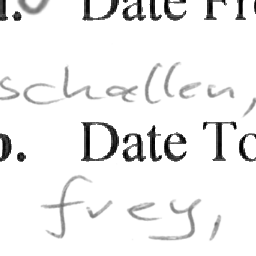 Date Fr
schallen,
b. Date To
frey,